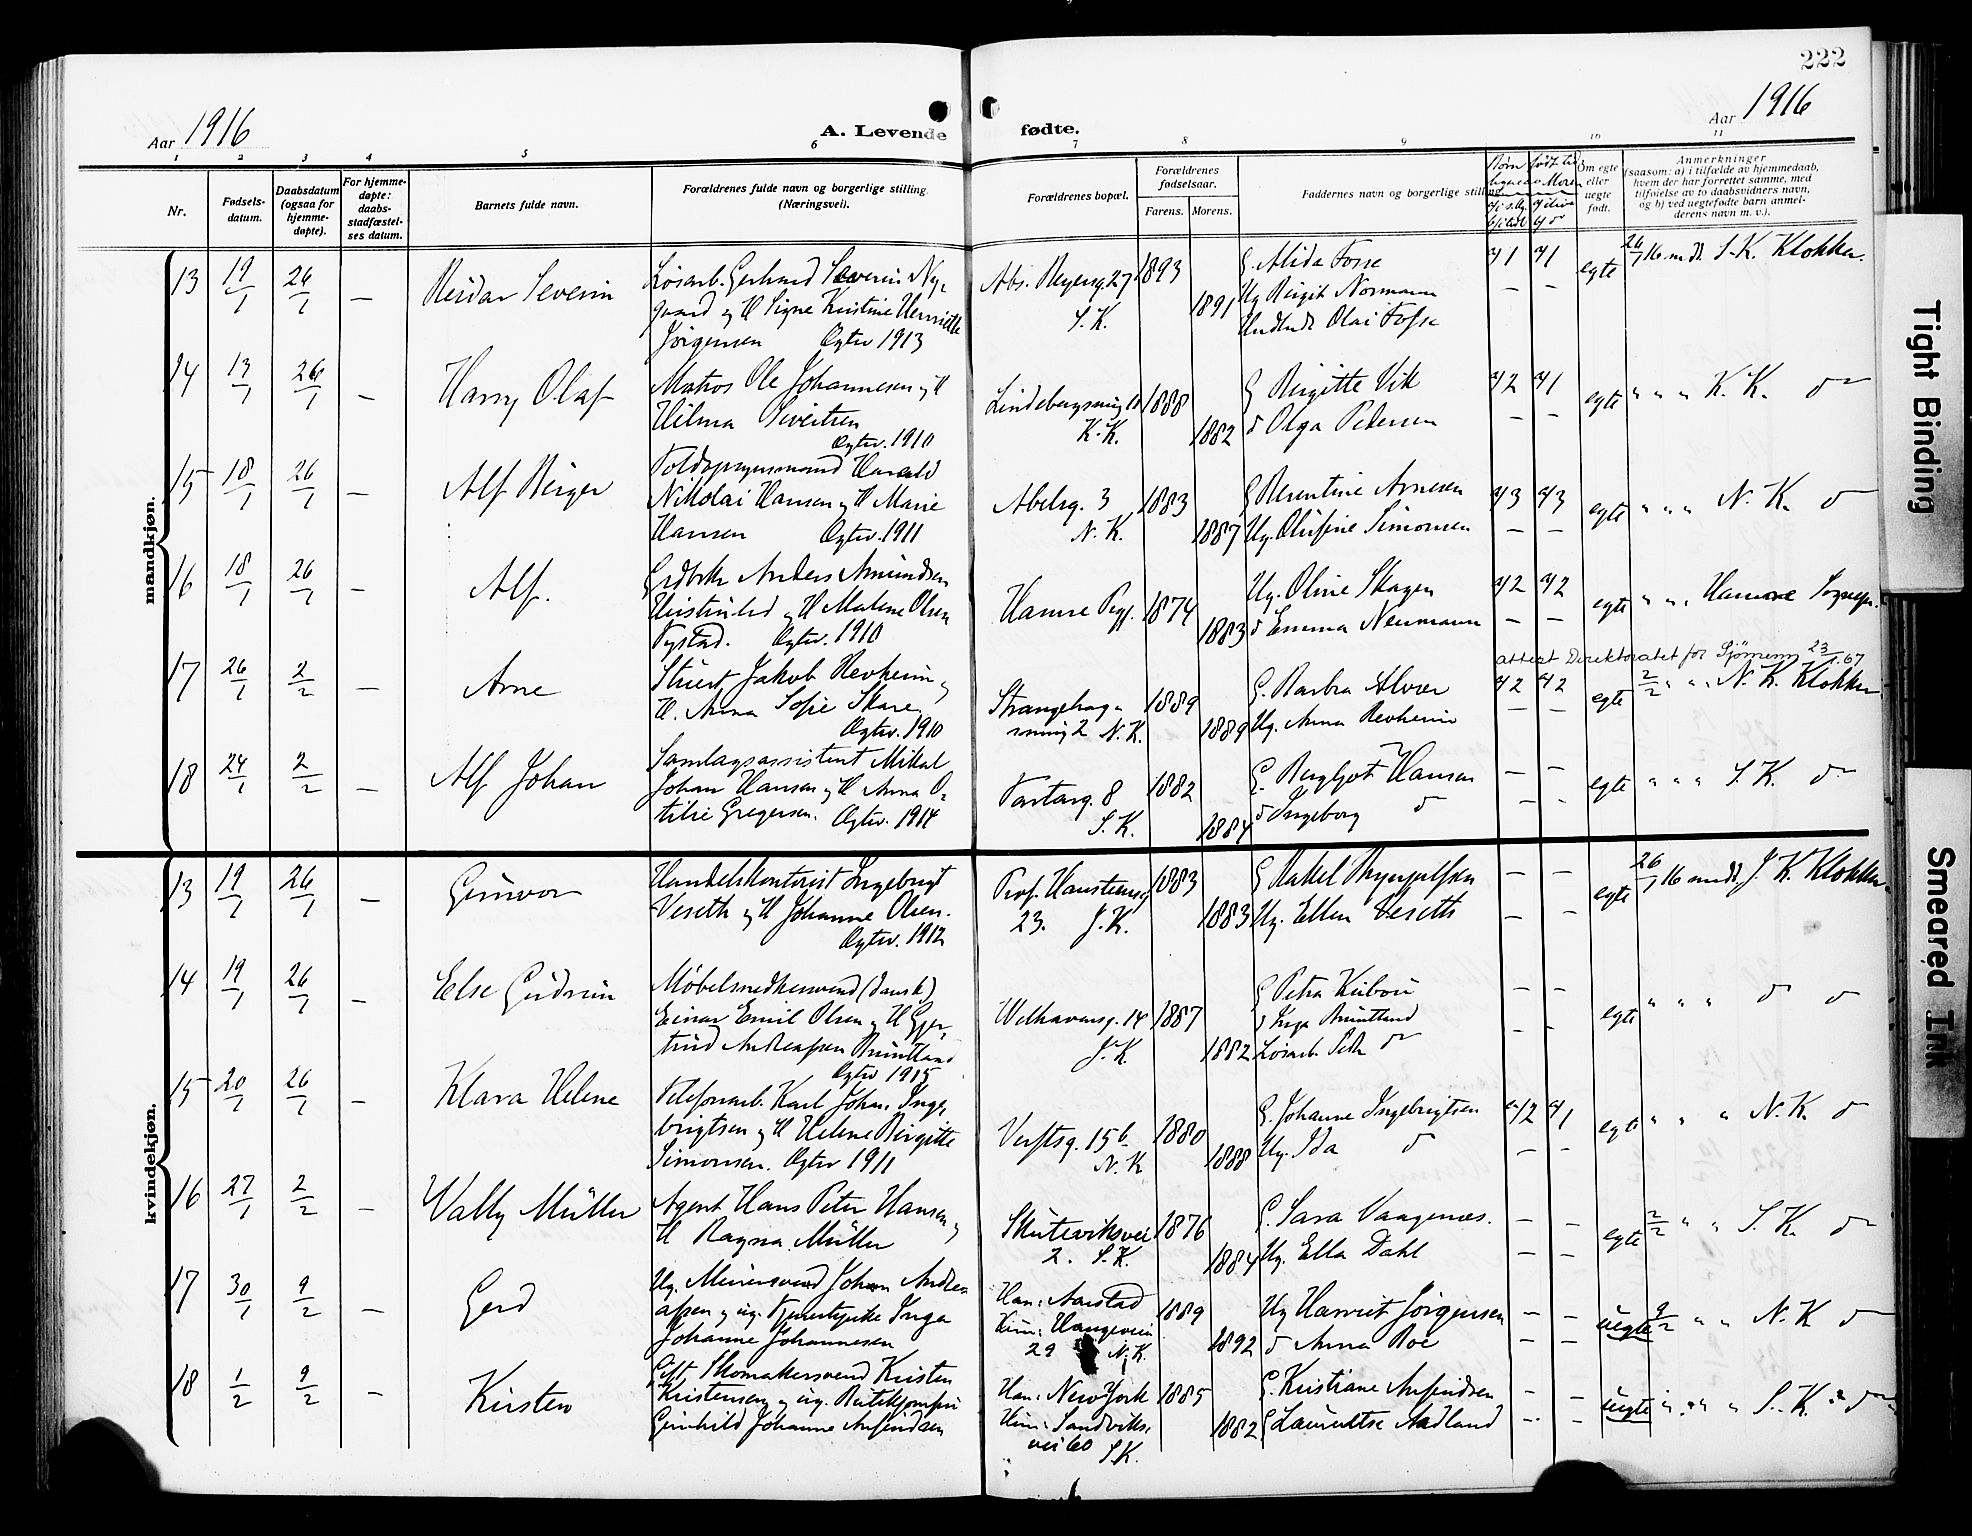 222
Aar 1916
A. Levende fødte.
Aar 1916
1 2 3 4 5 6 7 8 9 10 11
Nr.
Fødsels-
datum.
Daabsdatum
(ogsaa for
hjemme-
døpte).
For hjemme-
døpte:
daabs-
stadfæstel-
ses datum.
Barnets fulde navn.
Forældrenes fulde navn og borgerlige stilling.
(Næringsvei).
Forældrenes bopæl.
Forældrenes
fødselsaar.
Farens. Morens.
Faddernes navn og borgerlige stilling
Om egte
eller
uegte
født.
Anmerkninger
(saasom: a) i tilfælde av hjemmedaab,
hvem der har forrettet samme, med
tilføielse av to daabsvidners navn,
og b) ved uegtefødte barn anmel-
derens navn m. v.).
mandkjøn.
13 19/1 26/1 — Reidar Severin
Løsarb. Gerhard Severin Ny-
gaard og H Signe Kristine Henriette
Jørgensen Egtev 1913
Abs. Beyersg 27 S.K.
1893 1891
G. Alida Fosse
Ug Birgit Normann
Olai Fosse
egte 26/1 16 S.K. Klokker.
14 13/1 26/1 — Harry Olaf
Matros Ole Johannesen og H
Hilma Sivertsen
Egtev. 1910
Lindebergsmug 10
K.K.
1888 1882
G Birgitte Vik
d Olga Pedersen
egte " " " K.K. do
15 18/1 26/1 — Alf Birger
Toldopsynsmand Harald
Nikolai Hansen og H Marie
Hansen Egtev. 1911
Abelsg. 3
N.K.
1883 1887
G Berentine Arnesen
Ug. Olufine Simonsen
egte " " " N.K. do
16 18/1 26/1 — Alf.
Grdbr Anders Amundsen
og H Malene Olsen
Egtev. 1910
Hamre Pgj.
1874 1883
Ug. Oline Skagen
d Emma Neumann
egte " " " Hamre Sogne
attest Direktoratet for Sjømenn 23/1.67
17 26/1 2/2 — Arne
Stuert Jakob Revheim og
H. Anna Sofie Skare.
Egtev. 1910
Strangehag-
smug 2 N.K.
1889 1889
G. Barbra Alver
Ug. Anna Revheim
egte 2/2 " " N.K. Klokker
18 24/1 2/2 — Alf Johan
Samlagsassistent Mikal
Johan Hansen og H Anna O-
tilie Gregersen. Egtev. 1914
Tartarg. 8
S.K.
1882 1884
G. Bergljot Hansen
d Ingeborg do
egte " " " S.K. do
kvindekjøn.
13 19/1 26/1 — Gunvor
Handelskontorist Ingebrigt
Veseth og H Johanne Olsen.
Egtev. 1912
Prof. Hansteensg
23. J.K.
1883 1883
G Rakel
Ug. Ellen Veseth
egte 26/1 16 J.K. Klokker.
14 19/1 26/1 — Else Gudrun
Møbelsnedkersvend (dansk)
Einar Emil Olsen og H Gjer-
trud Andreassen Bruntland
Egtev 1915
Welhavensg. 14
J.K.
1887 1882
G Petra
d Inga Bruntland
Løsarb. do
egte " " " do do
15 20/1 26/1 — Klara Helene
Telefonarb. Karl Johan Inge-
brigtsen og H Helene Birgitte
Simonsen. Egtev 1911
Verftsg. 15 b
N.K.
1880 1888
G. Johanne Ingebrigtsen
Ug. Ida do
egte " " " N.K. do
16 27/1 2/2 — Wally Müller
Agent Hans Peter Hansen og
H Ragna Müller
Skuteviksvei
2. S.K.
1876 1884
G. Sara Vaagenæs.
Ug. Ella Dahl
egte 2/2 " " S.K. do
17 30/1 9/2 — Gerd
Ug. Murersvend Johan Andre-
assen og ug. Tjenestepike Inga
Johanne Johannesen
Han: Aarstad
Hun: Haugevein
29 N.K.
1889 1892
Ug Harriet Jørgensen
d Anna Roe
uegte 9/2 " " N.K do
18 1/2 9/2 — Kirsten
Gift Skomakersvend Kristen
Kristensen og ug. Butikjomfru
Gunhild Johanne Arnfindsen
Han: New York
Hun: Sandviks-
vei 60 S.K.
1885 1882
G. Kristiane Arnfindsen
G Lauritse Aadland
uegte " " " S.K. do
Tight Binding
Smeared Ink